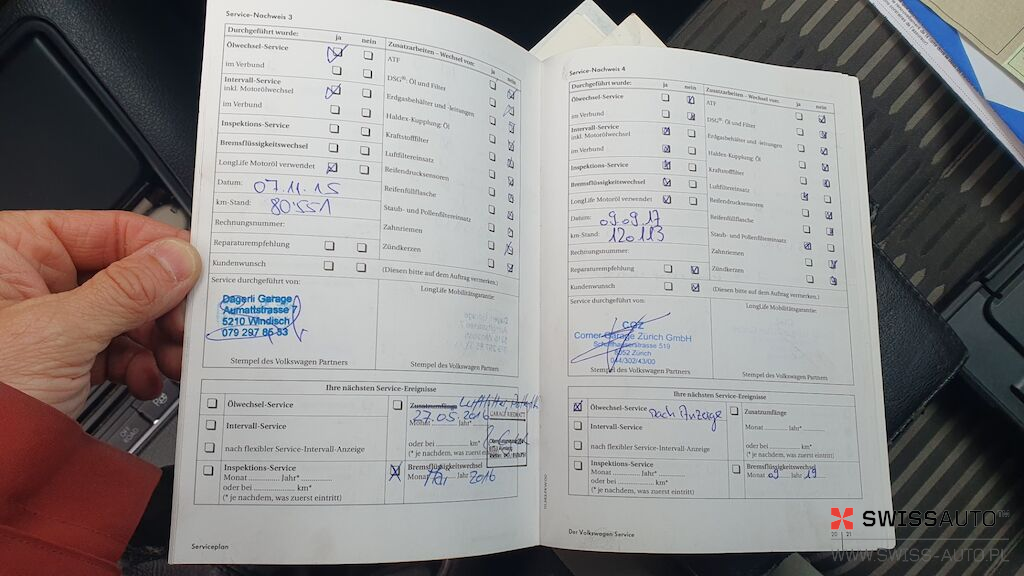 Service-Nachweis 3
Durchgeführt wurde: ja nein
Ölwechsel-Service
im Verbund
Intervall-Service
inkl. Motorölwechsel
im Verbund
Inspektions-Service
Bremsflüssigkeitswechsel
LongLife Motoröl verwendet
Datum: 07.11.15
km-Stand: 80551
Rechnungsnummer:
Reparaturempfehlung
Kundenwunsch
Zusatzarbeiten – Wechsel von: ja nein
ATF
DSG®: Öl und Filter
Erdgasbehälter und -leitungen
Haldex-Kupplung: Öl
Kraftstofffilter
Luftfiltereinsatz
Reifendrucksensoren
Reifenfüllflasche
Staub- und Pollenfiltereinsatz
Zahnriemen
Zündkerzen
(Diesen bitte auf dem Auftrag vermerken.)
Service durchgeführt von:
Dagerli Garage
Aumattstrasse 7
5210 Windisch
079 297 65 53
Stempel des Volkswagen Partners
LongLife Mobilitätsgarantie:
Stempel des Volkswagen Partners
Ihre nächsten Service-Ereignisse
Ölwechsel-Service
Intervall-Service
nach flexibler Service-Intervall-Anzeige
Inspektions-Service
Monat Jahr*
oder bei km*
(* je nachdem, was zuerst eintritt)
Zusatzumfänge
27.05.2016
Monat Jahr*
oder bei km*
(* je nachdem, was zuerst eintritt)
Bremsflüssigkeitswechsel
Monat Jahr 2016
Serviceplan
Service-Nachweis 4
Durchgeführt wurde: ja nein
Ölwechsel-Service
im Verbund
Intervall-Service
inkl. Motorölwechsel
im Verbund
Inspektions-Service
Bremsflüssigkeitswechsel
LongLife Motoröl verwendet
Datum: 09.09.17
km-Stand: 120113
Rechnungsnummer:
Reparaturempfehlung
Kundenwunsch
Zusatzarbeiten – Wechsel von: ja nein
ATF
DSG®: Öl und Filter
Erdgasbehälter und -leitungen
Haldex-Kupplung: Öl
Kraftstofffilter
Luftfiltereinsatz
Reifendrucksensoren
Reifenfüllflasche
Staub- und Pollenfiltereinsatz
Zahnriemen
Zündkerzen
(Diesen bitte auf dem Auftrag vermerken.)
Service durchgeführt von:
CGZ
Corner-Garage Zürich GmbH
Schaffhauserstrasse 519
8052 Zürich
044/302/43/00
Stempel des Volkswagen Partners
LongLife Mobilitätsgarantie:
Stempel des Volkswagen Partners
Ihre nächsten Service-Ereignisse
Ölwechsel-Service nach Anzeige
Intervall-Service
nach flexibler Service-Intervall-Anzeige
Inspektions-Service
Monat Jahr*
oder bei km*
(* je nachdem, was zuerst eintritt)
Zusatzumfänge
Monat Jahr*
oder bei km*
(* je nachdem, was zuerst eintritt)
Bremsflüssigkeitswechsel
Monat 09 Jahr 19
Der Volkswagen Service
20 21
SWISSAUTO
WWW.SWISS-AUTO.PL